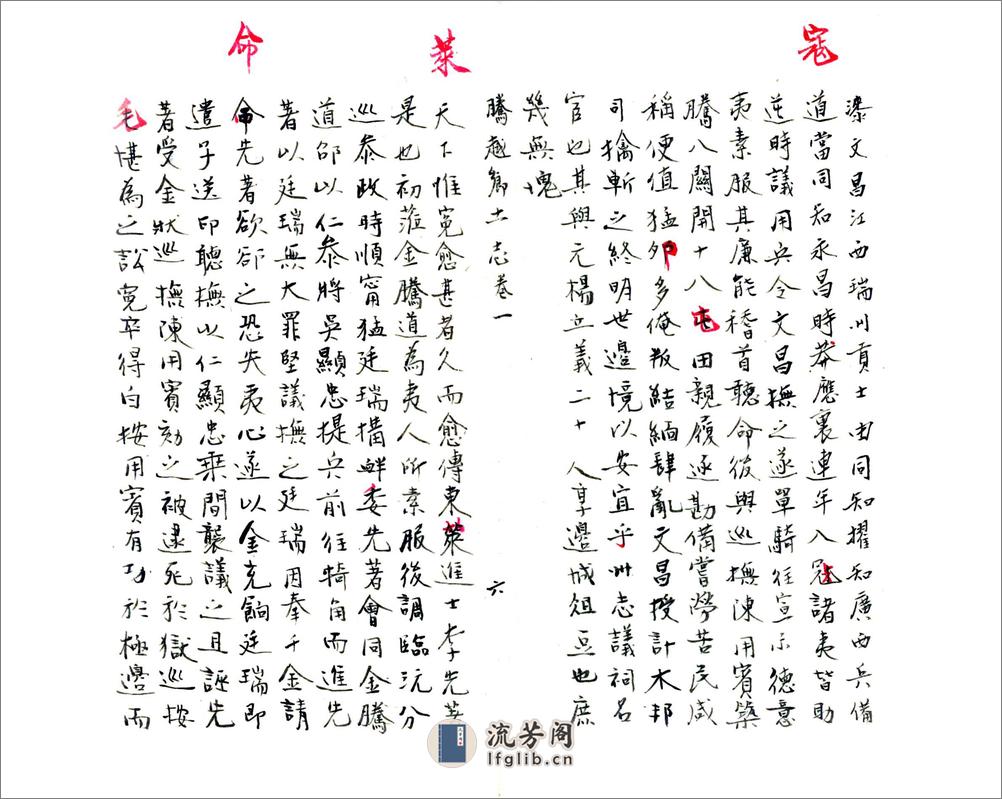 寇
漆文昌江西瑞州貢士由同知擢知廣西兵備
道當同知永昌時莽應裏連年入寇諸夷皆助
逆時議用兵令文昌撫之遂單騎往宣示德意
夷素服其廉能稽首聽命後與巡撫陳用賓築
騰八關開十八屯田親履逐勘備嘗勞苦民咸
稱便值猛卯多俺叛結緬肆亂文昌授計木邦
司擒斬之終明世邊境以安宜乎州志議祠名
官也其與元楊立義二十人享邊城俎豆也庶
幾無愧
騰越鄉土志卷一
六
萊
天下惟寃愈甚者久而愈傳東萊進士李先著
是也初蒞金騰道為夷人所素服後調臨沅分
巡泰政時順甯猛廷瑞搆衅委先著會同金騰
道邵以仁泰將吳顯忠提兵前往犄角而進先
著以廷瑞無大罪堅議撫之廷瑞因奉千金請
命
命先著欲卻之恐失夷心遂以金充餉廷瑞即
遣子送印聽撫以仁顯忠乘間襲議之且誣先
著受金狀巡撫陳用賓劾之被逮死於獄巡按
毛堪為之訟寃卒得白按用賓有功於極邊而
流芳阁
lfglib.cn